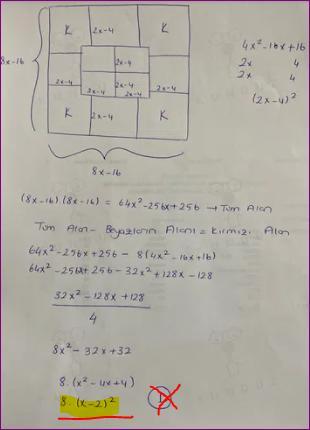 K 2x-4 K
8x-16
2x-4
2x-4 2x-4 2x-4
2x-4 2x-4
K 2x-4 K
8x-16
4x²-16x+16
2x 4
2x 4
(2x-4)²
(8x-16).(8x-16) = 64x²-256x+256 → Tüm Alan
Tüm Alan - Beyazların Alanı = Kırmızı Alan
64x²-256x+256 - 8(4x²-16x+16)
64x²-256x+256-32x²+128x-128
32x²-128x+128
4
8x²-32x+32
8.(x²-4x+4)
8.(x-2)²